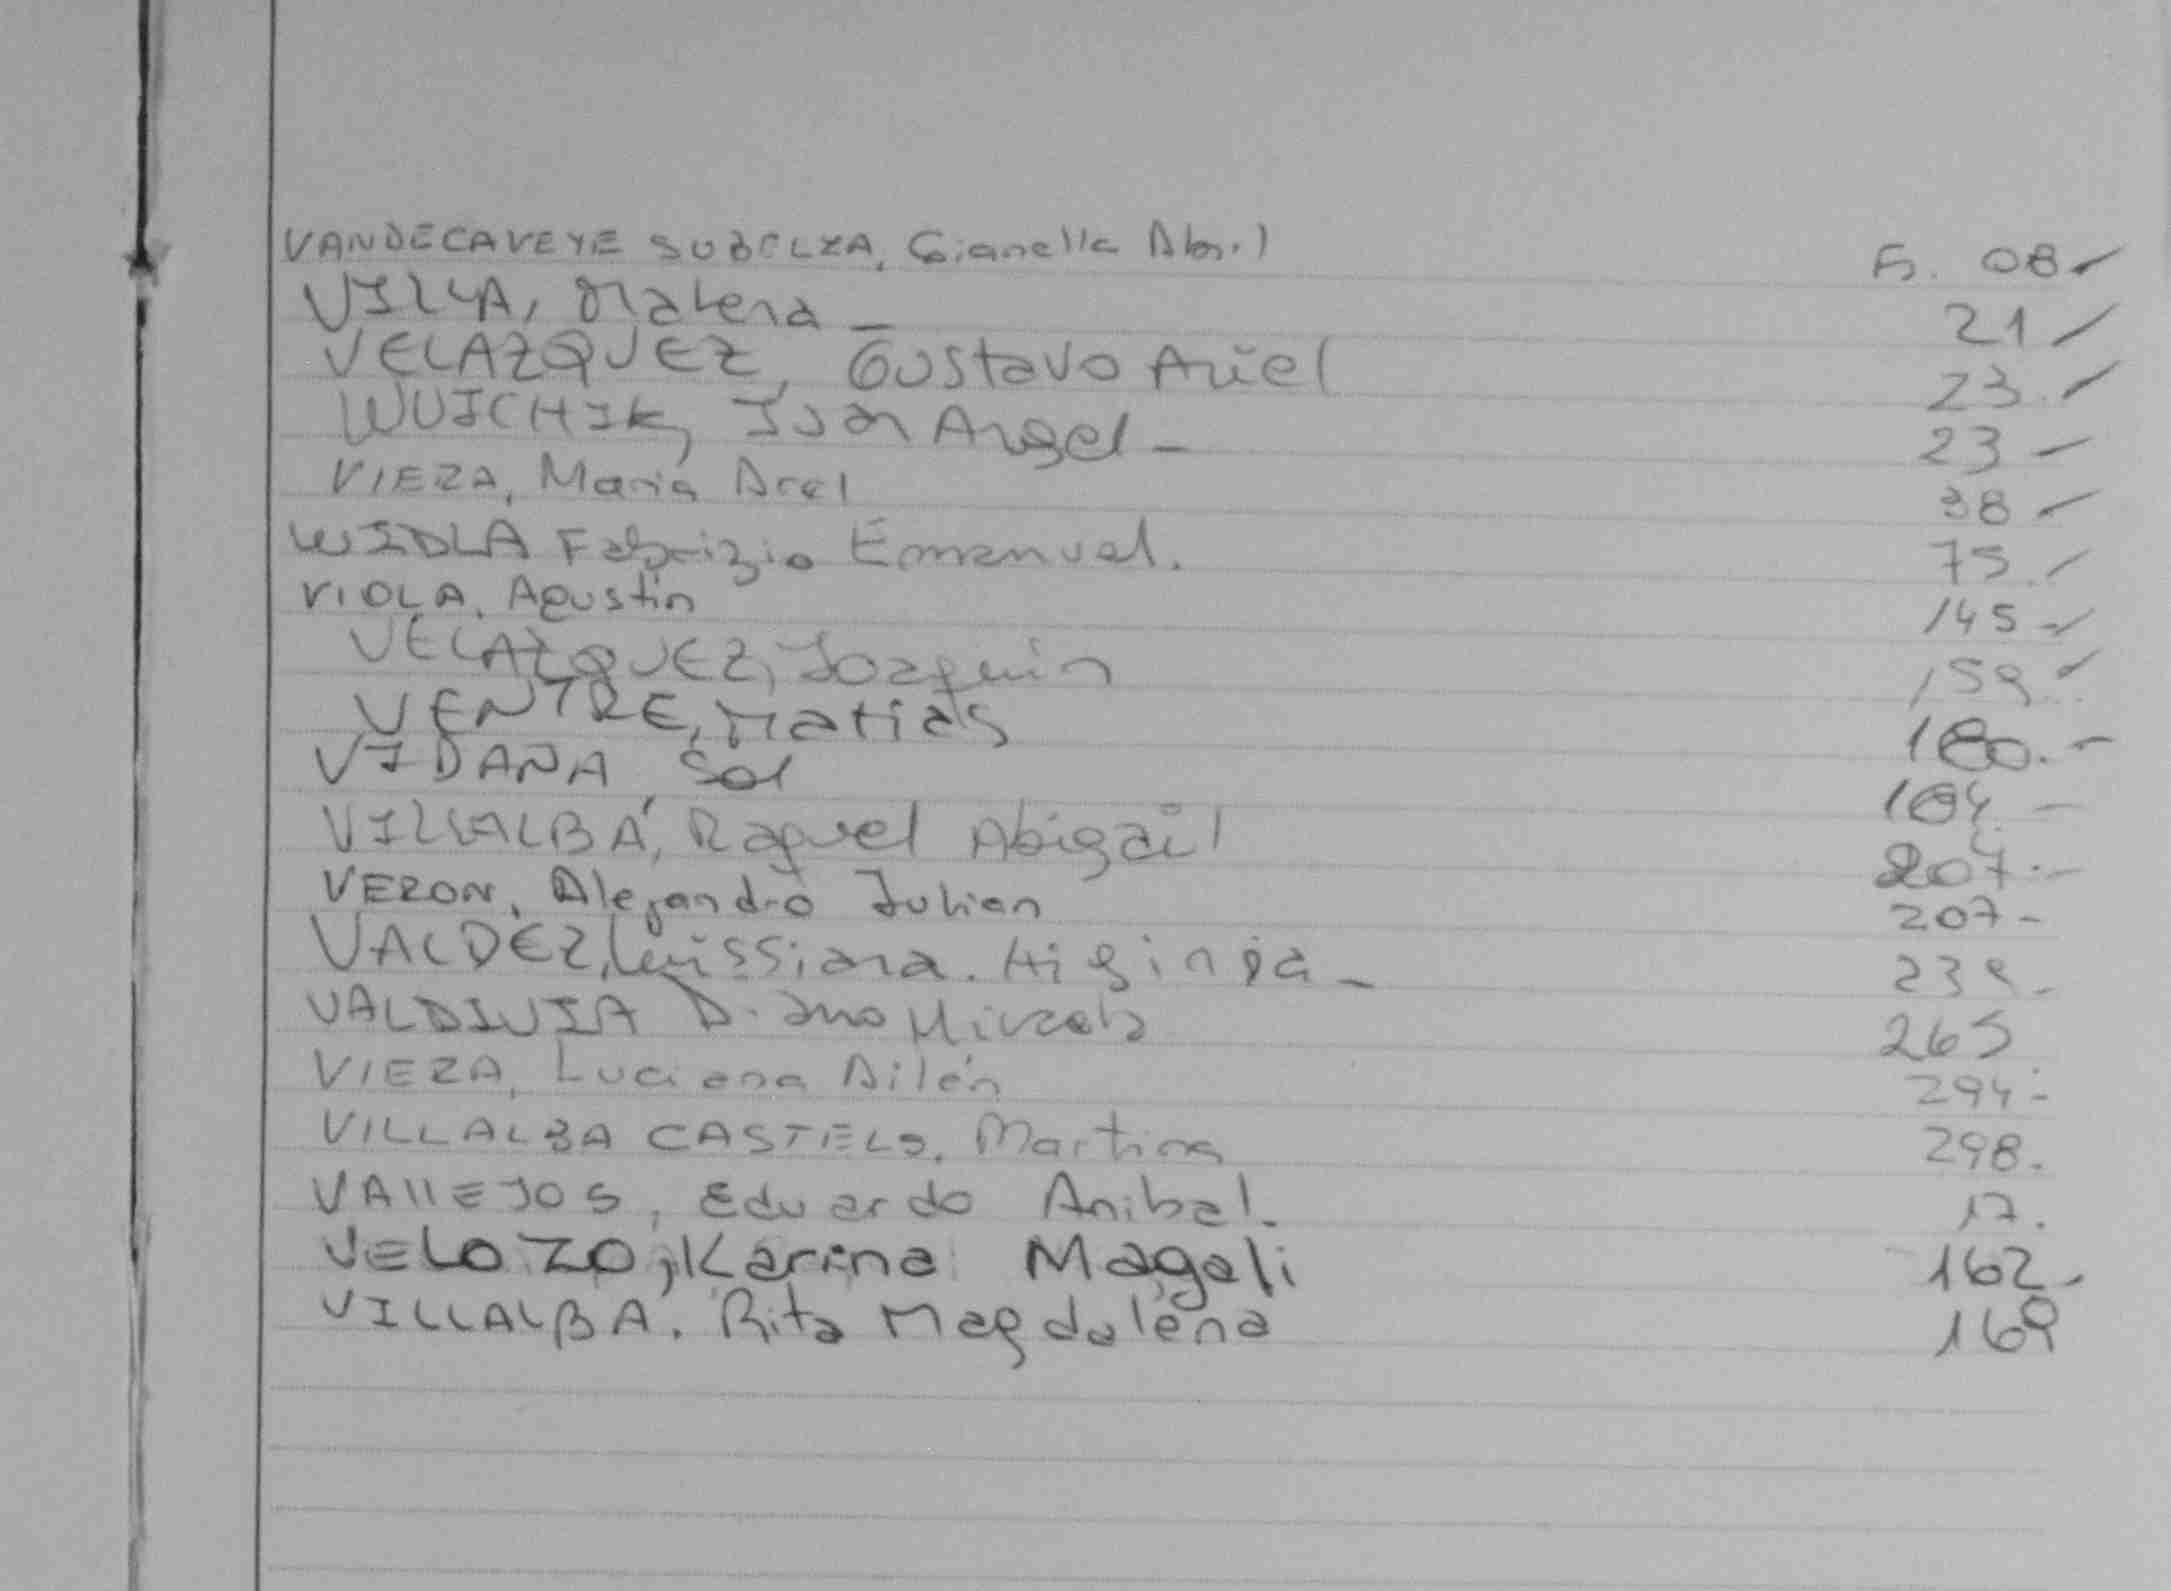 VANDECAVEYE SUBELZA, Gianella Abr.) Fs. 08
VILLA, Malena 21
VELAZQUEZ, Gustavo Ariel 23.
WUICHIK, Ivan Angel 23
VIERA, Maria 38
WIDLA Fabrizio Emanuel. 75.
VIOLA, Agustín 145
VELAZQUEZ, Joaquin 159.
VENTRE, Matias 180.
VIDAÑA, Sol 184
VILLALBA, Raquel Abigail 207.
VERON, Alejandro Julian 207
VALDEZ, Higinia
VALDIVIA 265
VIERA, Luciana Ailén 294
VILLALBA CASTELS, Martina 298.
VALLEJOS, Eduardo Anibal. 17.
VELOZO, Karina Magali 162.
VILLALBA. Rita Magdalena 169